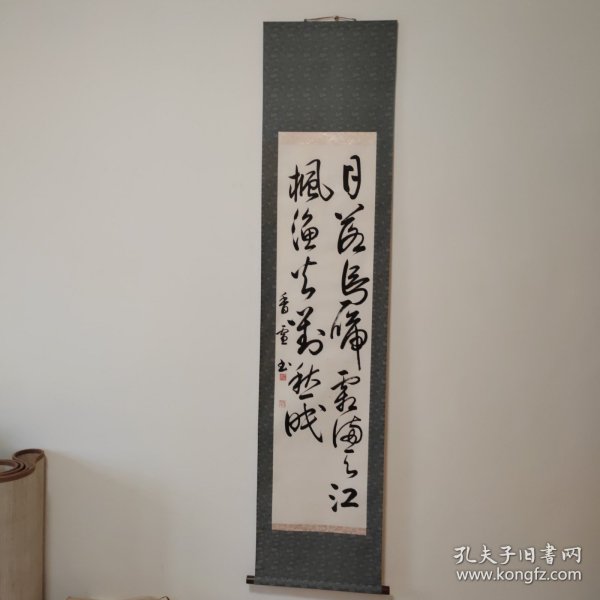 月落烏啼霜滿天江
楓漁火對愁眠
香雪書
孔夫子旧書网
www.kongfz.com